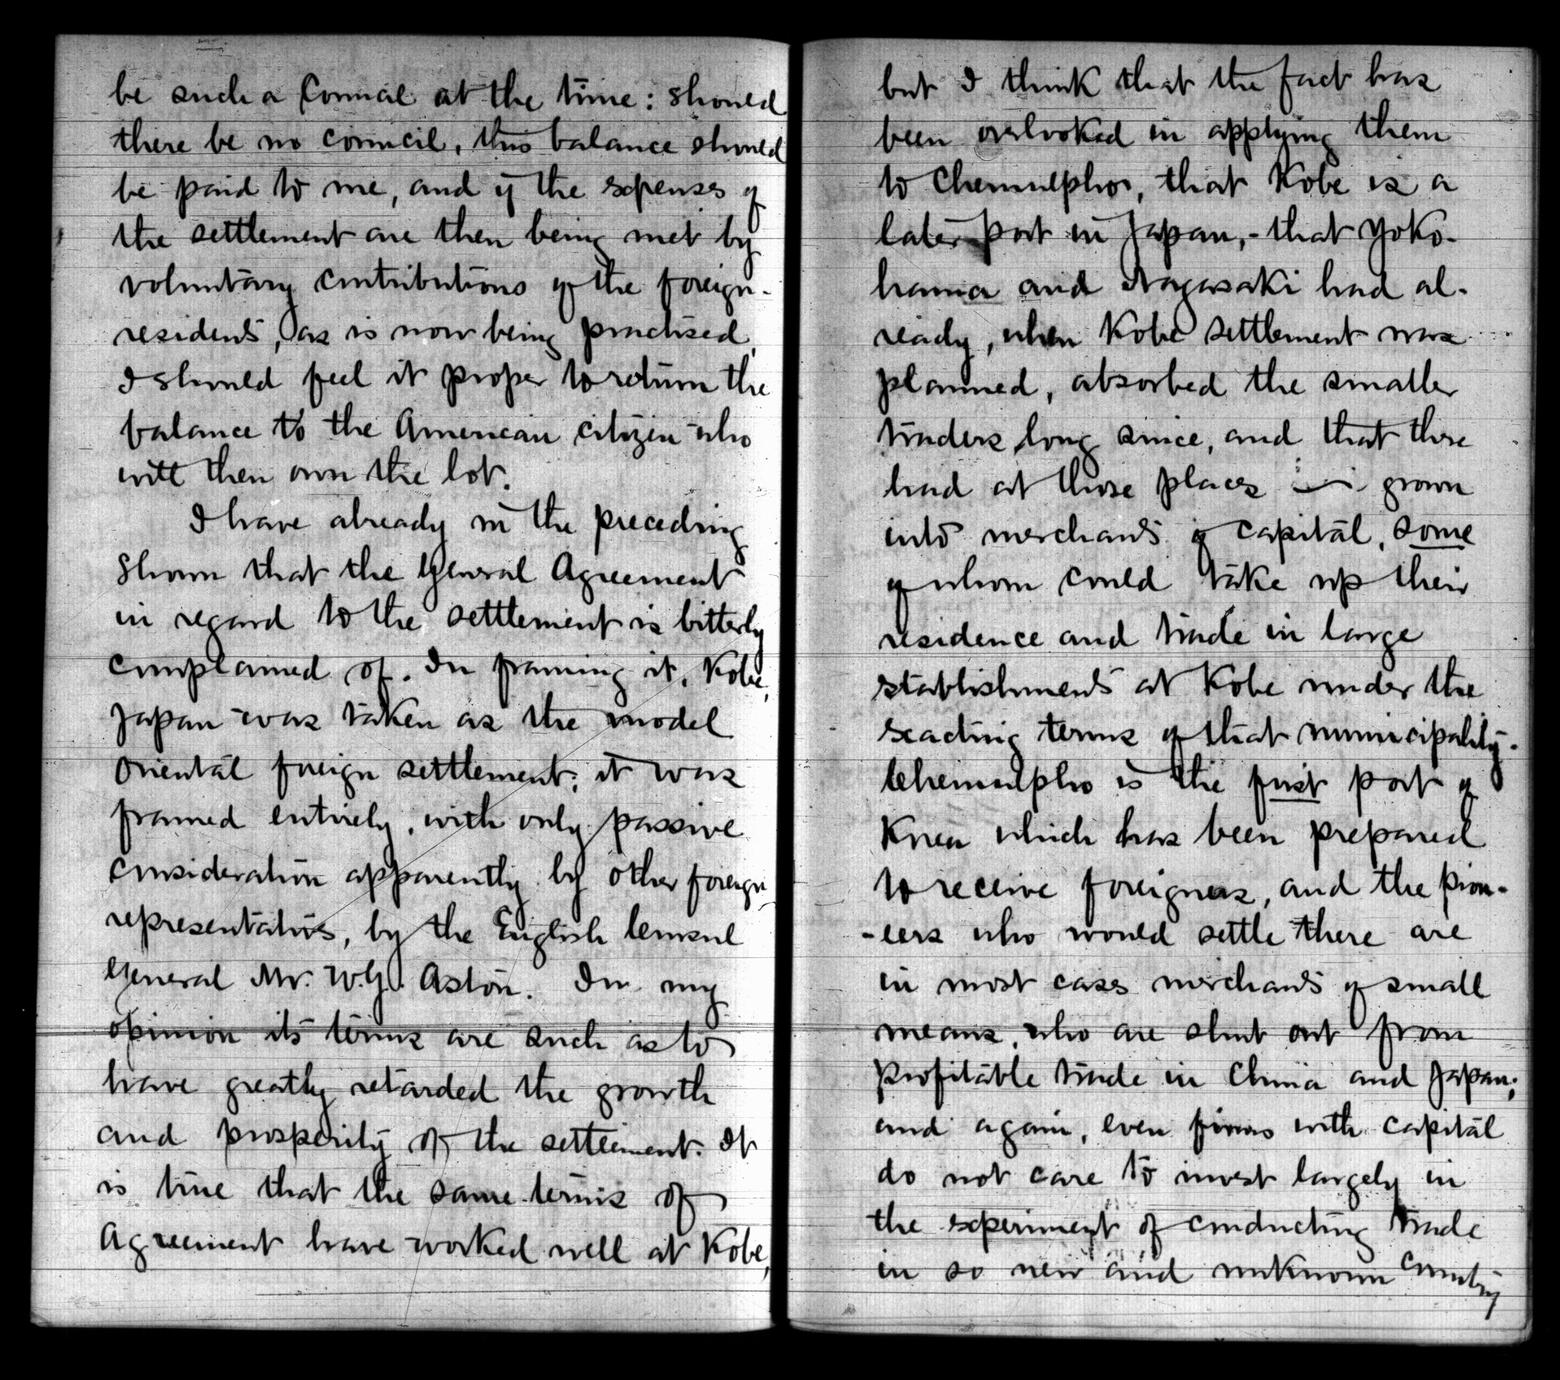 be such a Council at the time: should
there be no council, this balance should
be paid to me, and if the expenses of
the settlement are then being met by
voluntary contributions of the foreign-
residents, as is now being practised,
I should feel it proper to return the
balance to the American citizen who
will then own the lot.
I have already in the preceding
shown that the General Agreement
in regard to the settlement is bitterly
complained of. In framing it, Kobe,
Japan was taken as the model
Oriental foreign settlement; it was
framed entirely, with only passive
consideration apparently by other foreign
representatives, by the English Consul
General Mr. W.G. Aston. In my
opinion its terms are such as to
have greatly retarded the growth
and prosperity of the settlement. It
is true that the same terms of
Agreement have worked well at Kobe,
but I think that the fact has
been overlooked in applying them
to Chemulpho, that Kobe is a
later port in Japan,- that Yoko-
hama and Nagasaki had al-
ready, when Kobe settlement was
planned, absorbed the smaller
traders long since, and that these
had at those places grown
into merchants of capital, some
of whom could take up their
residence and trade in large
establishments at Kobe under the
exacting terms of that municipality.
Chemulpho is the first port of
Korea which has been prepared
to receive foreigners, and the pion-
-eers who would settle there are
in most cases merchants of small
means, who are shut out from
profitable trade in China and Japan;
and again, even firms with capital
do not care to invest largely in
the experiment of conducting trade
in so new and unknown country